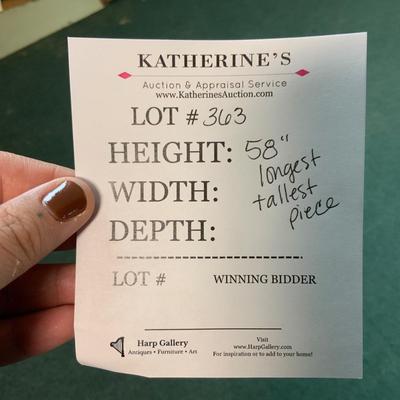 KATHERINE'S
Auction & Appraisal Service
www.KatherinesAuction.com
LOT # 363
HEIGHT: 58"
longest
WIDTH:
tallest
piece
DEPTH:
LOT #
WINNING BIDDER
Harp Gallery
Antiques • Furniture • Art
Visit
www.HarpGallery.com
For inspiration or to add to your home!